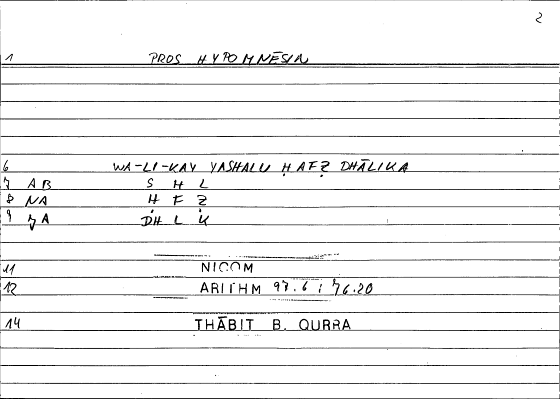 2
1 PROS HYPOMNĒSIN
6 WA-LI-KAY YASHALU ḤAFẒ DHĀLIKA
7 AB S H L
8 NA Ḥ F Ẓ
9 ȜA DH L K
11 NICOM
12 ARITHM 97.6 ; 76.20
14 THĀBIT B. QURRA